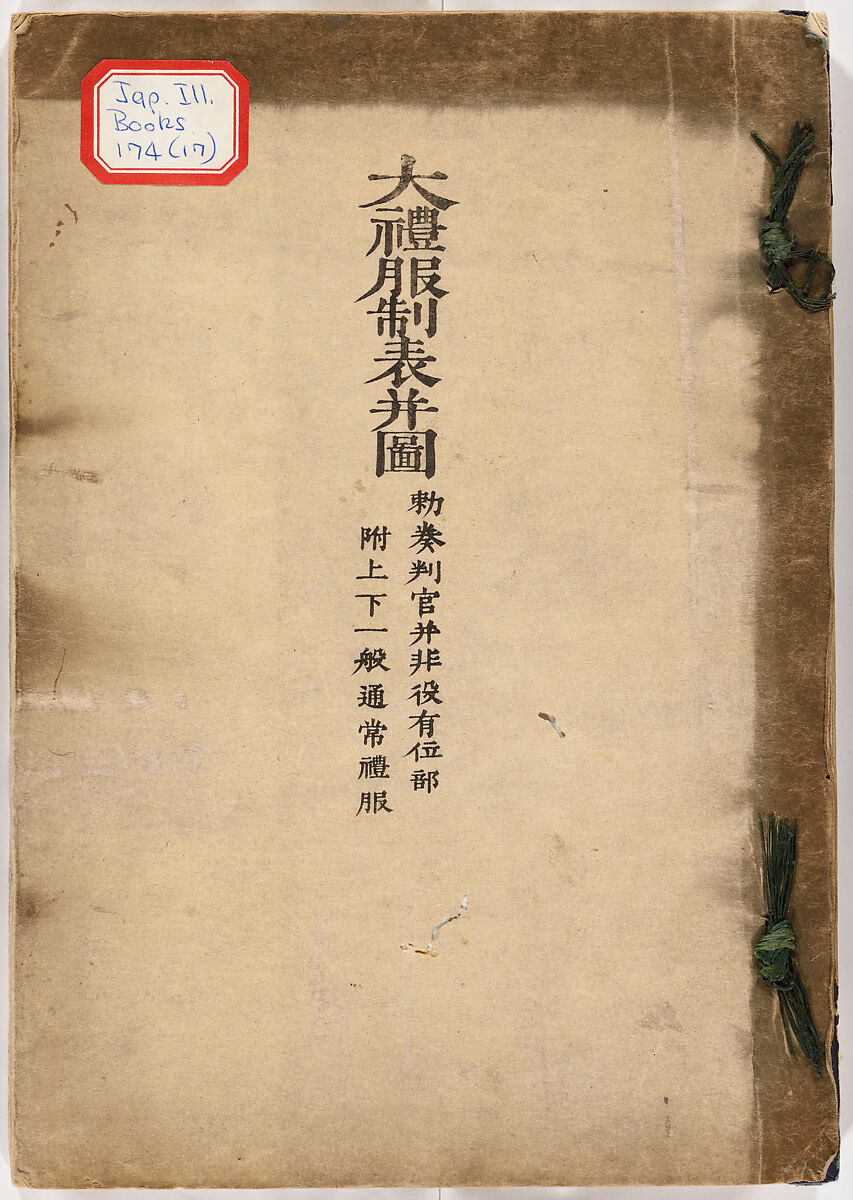 Jap. Ill.
Books
174 (17)
大禮服制表并圖
勅奏判官并非役有位部
附上下一般通常禮服